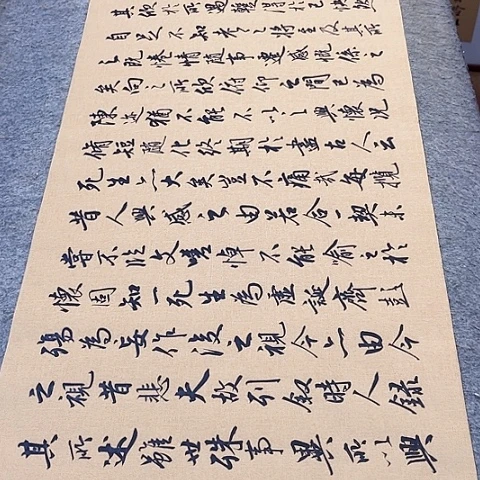 其欣於所遇暫得於己快然
自足不知老之將至及其所
之既惓情隨事遷感慨係之
矣向之所欣俯仰之間已為
陳迹猶不能不以之興懷況
脩短隨化終期於盡古人云
死生亦大矣豈不痛哉每攬
昔人興感之由若合一契未
嘗不臨文嗟悼不能喻之於
懷固知一死生為虛誕齊彭
殤為妄作後之視今亦由今
之視昔悲夫故列敘時人錄
其所述雖世殊事異所以興